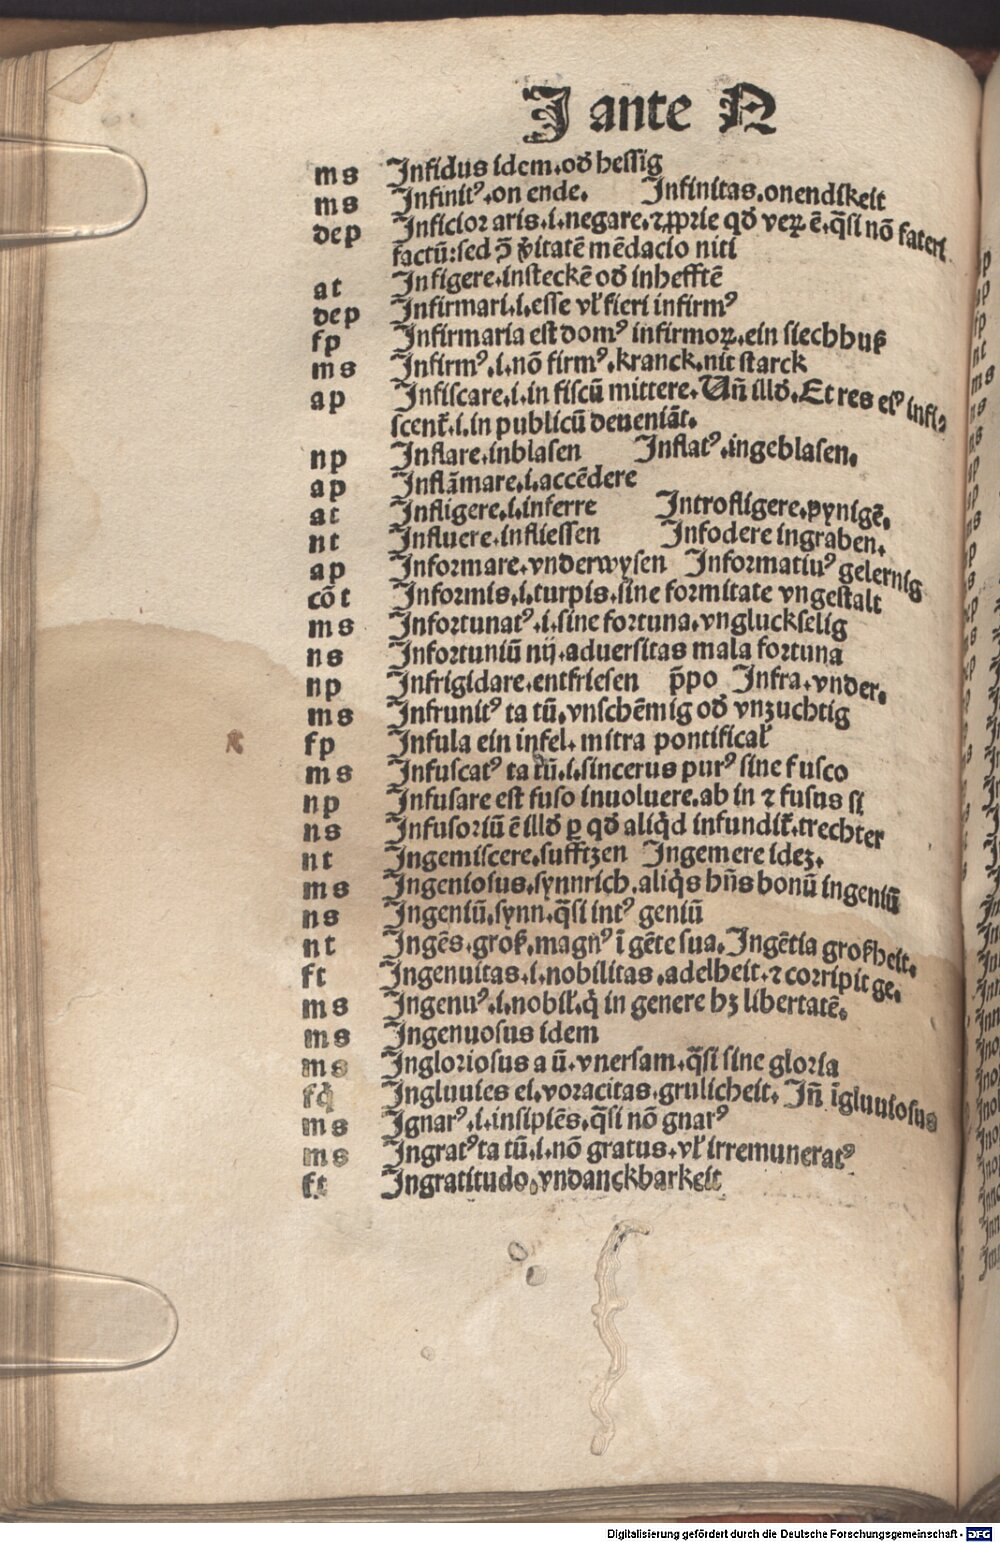 I ante N
ms Infidus idem. od̄ hessig
ms Infinitꝰ. on ende. Infinitas. onendikeit
dep Inficior aris. i. negare. ⁊ ꝓprie qd̄ veꝝ ē. q̄si nō fateri
factū: sed ꝓ v̓itatē mēdacio niti
at Infigere. insteckē od̄ inhefftē
dep Infirmari. i. esse vl̓ fieri infirmꝰ
fp Infirmaria est domꝰ infirmoꝝ. ein siechhuß
ms Infirmꝰ. i. nō firmꝰ. kranck. nit starck
ap Infiscare. i. in fiscū mittere. Uñ illd̓. Et res eiꝰ infi⸗
scent᷑. i. in publicū deueniāt.
np Inflare. inblasen Inflatꝰ. ingeblasen.
ap Inflāmare. i. accēdere
at Infligere. i. inferre Introfligere. pynigē.
nt Influere. infliessen Infodere ingraben.
ap Informare. vnderwysen Informatiuꝰ gelernig
cōt Informis. i. turpis. sine formitate vngestalt
ms Infortunatꝰ. i. sine fortuna. vngluckselig
ns Infortuniū nij. aduersitas mala fortuna
np Infrigidare. entfriesen p̄po Infra. vnder.
ms Infrunitꝰ ta tū. vnschēmig od̓ vnzuchtig
fp Infula ein infel. mitra pontifical̓
ms Infuscatꝰ ta tū. i. sincerus purꝰ sine fusco
np Infusare est fuso inuoluere. ab in ⁊ fusus si
ns Infusoriū ē illd̓ ꝑ qd̓ aliq̓d infundit᷑. trechter
nt Ingemiscere. sufftzen Ingemere idez.
ms Ingeniosus. synnrich. aliq̓s hn̄s bonū ingeniū
ns Ingeniū. synn. q̄si intꝰ geniū
nt Ingēs. groß. magnꝰ ī gēte sua. Ingētia großheit.
ft Ingenuitas. i. nobilitas. adelheit. ⁊ corripit ge.
ms Ingenuꝰ. i. nobil̓. q̓ in genere hꝫ libertatē.
ms Ingenuosus idem
ms Ingloriosus a ū. vnersam. q̄si sine gloria
fq̓ Ingluuies ei. voracitas. grulicheit. Iñ īgluuiosus
ms Ignarꝰ. i. insipiēs. q̄si nō gnarꝰ
ms Ingratꝰ ta tū. i. nō gratus. vl̓ irremuneratꝰ
ft Ingratitudo. vndanckbarkeit
Digitalisierung gefördert durch die Deutsche Forschungsgemeinschaft - DFG